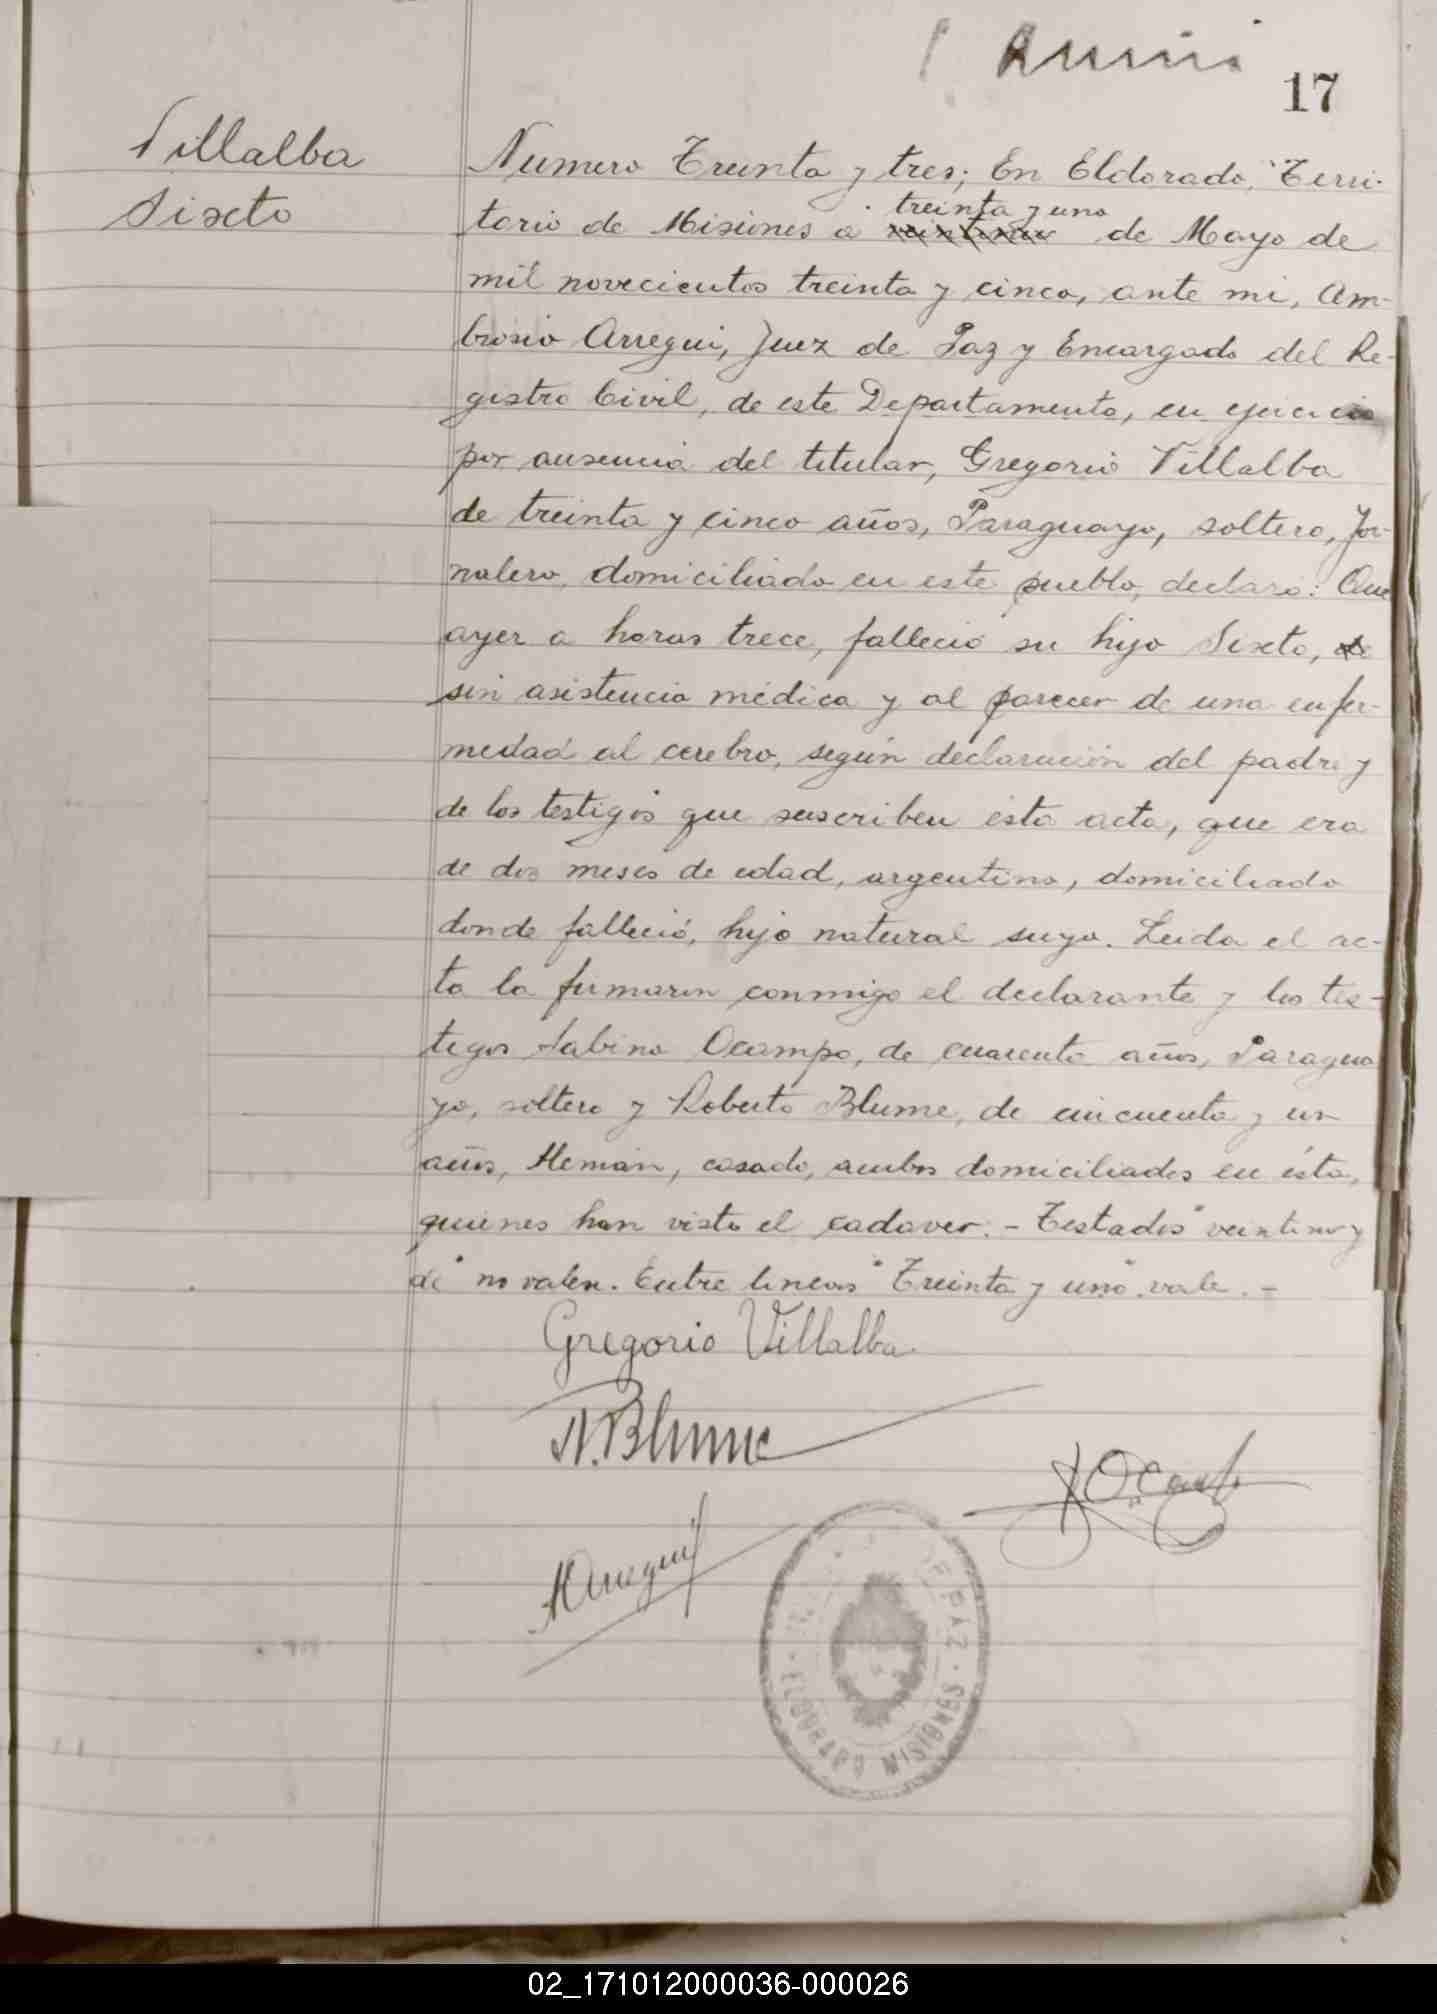 17
Villalba
Sixto
Numero Treinta y tres; En Eldorado, Terri-
treinta y uno
torio de Misiones a veintinuev de Mayo de
mil novecientos treinta y cinco, ante mi, Am-
brosio Arregui, Juez de Paz y Encargado del Re-
gistro Civil, de este Departamento, en ejercicio
por ausencia del titular, Gregorio Villalba
de treinta y cinco años, Paraguayo, soltero, Jor-
nalero, domiciliado en este pueblo, declaró: Que
ayer a horas trece, falleció su hijo Sixto, de
sin asistencia médica y al parecer de una enfer-
medad al cerebro, según declaración del padre y
de los testigos que suscriben ésta acta, que era
de dos meses de edad, argentino, domiciliado
donde falleció, hijo natural suyo. Leida el ac-
ta la firmaron conmigo el declarante y los tes-
tigos Sabino Ocampo, de cuarenta años, Paragua
yo, soltero y Roberto Blume, de cincuenta y un
años, Aleman, casado, ambos domiciliados en ésta,
quienes han visto el cadaver. - Testados "veintinuev y
de" no valen. Entre lineas "Treinta y uno" vale. -
Gregorio Villalba
R. Blume
S Ocampo
A Arregui
DE PAZ
ELDORADO MISIONES
02_171012000036-000026